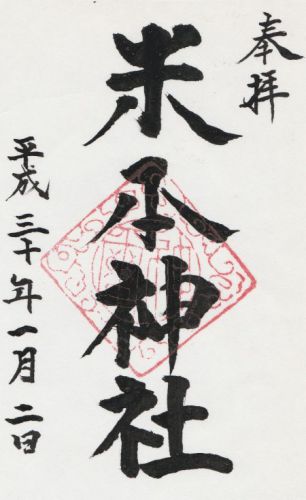 奉拝
米本神社
平成三十年一月二日